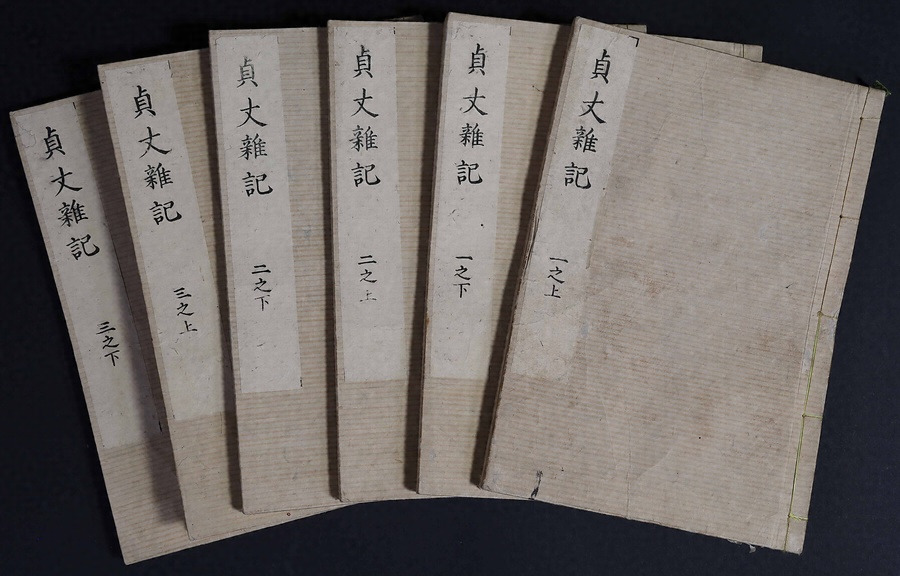 貞丈雜記 一之上
貞丈雜記 一之下
貞丈雜記 二之上
貞丈雜記 二之下
貞丈雜記 三之上
貞丈雜記 三之下